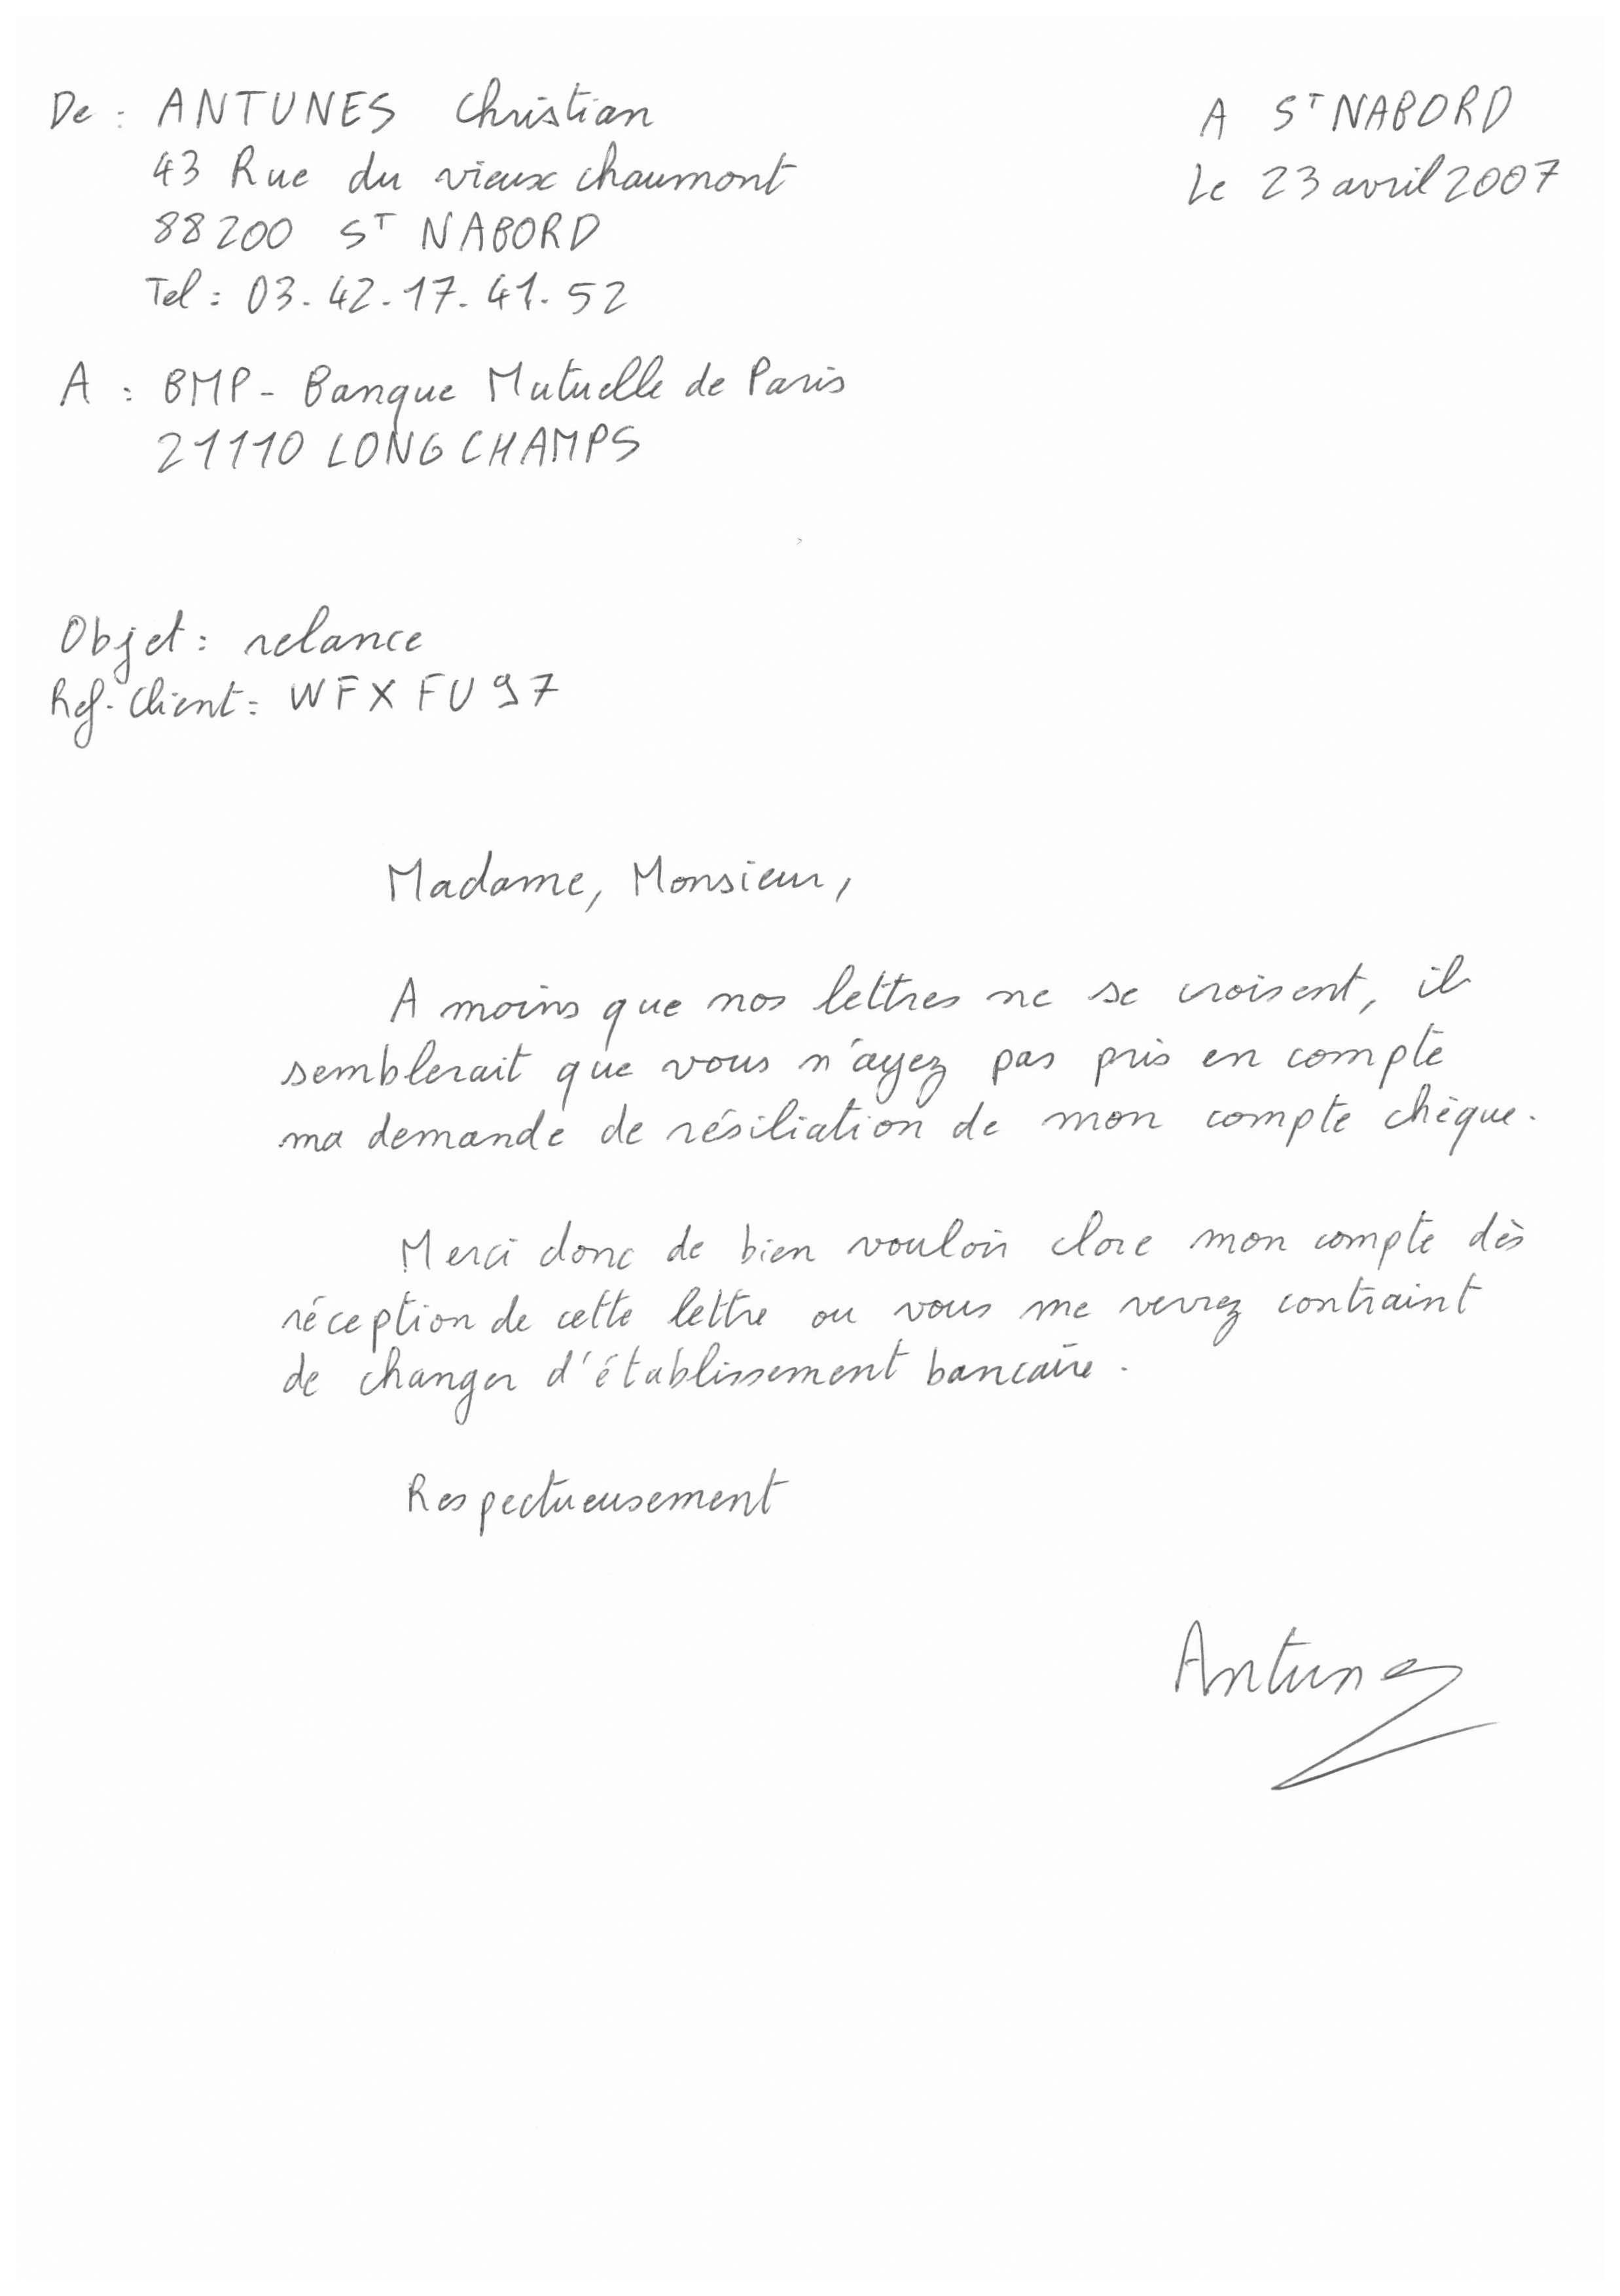 De : ANTUNES Christian
43 Rue du vieux chaumont
88200 ST NABORD
Tel : 03.42.17.41.52
A ST NABORD
Le 23 avril 2007
A : BMP - Banque Mutuelle de Paris
21110 LONGCHAMPS
Objet : relance
Ref. Client : WFXFU97
Madame, Monsieur,
A moins que nos lettres ne se croisent, il
semblerait que vous n'ayez pas pris en compte
ma demande de résiliation de mon compte chèque.
Merci donc de bien vouloir clore mon compte dès
réception de cette lettre ou vous me verrez contraint
de changer d'établissement bancaire.
Respectueusement
Antunes